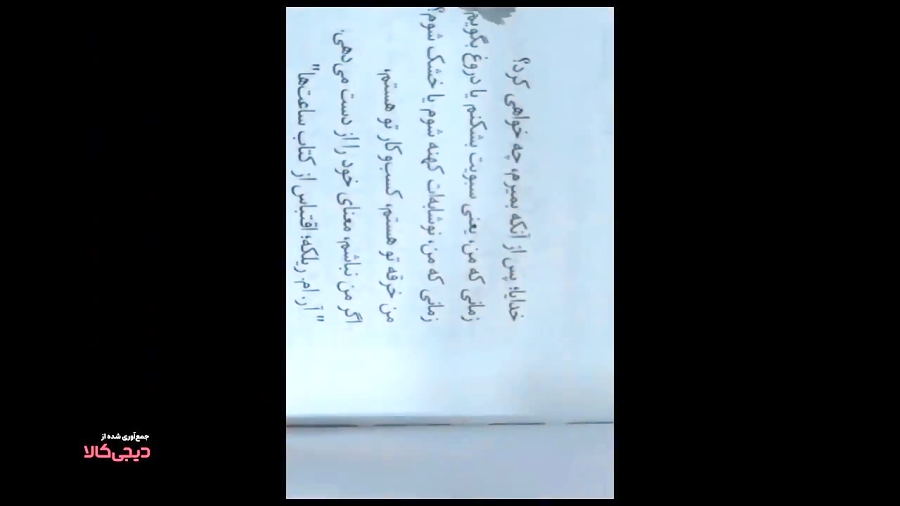 خدایا؛ پس از آنکه بمیرم، چه خواهی کرد؟
زمانی که من، یعنی سبویت بشکنم یا دروغ بگویم
زمانی که من، نوشابه‌ات کهنه شوم یا خشک شوم؟
من خرقه تو هستم، کسب‌وکار تو هستم،
اگر من نباشم، معنای خود را از دست می‌دهی.
" آر. ام. ریلکه، اقتباس از کتاب ساعت‌ها"
جمع‌آوری شده از
دیجی‌کالا